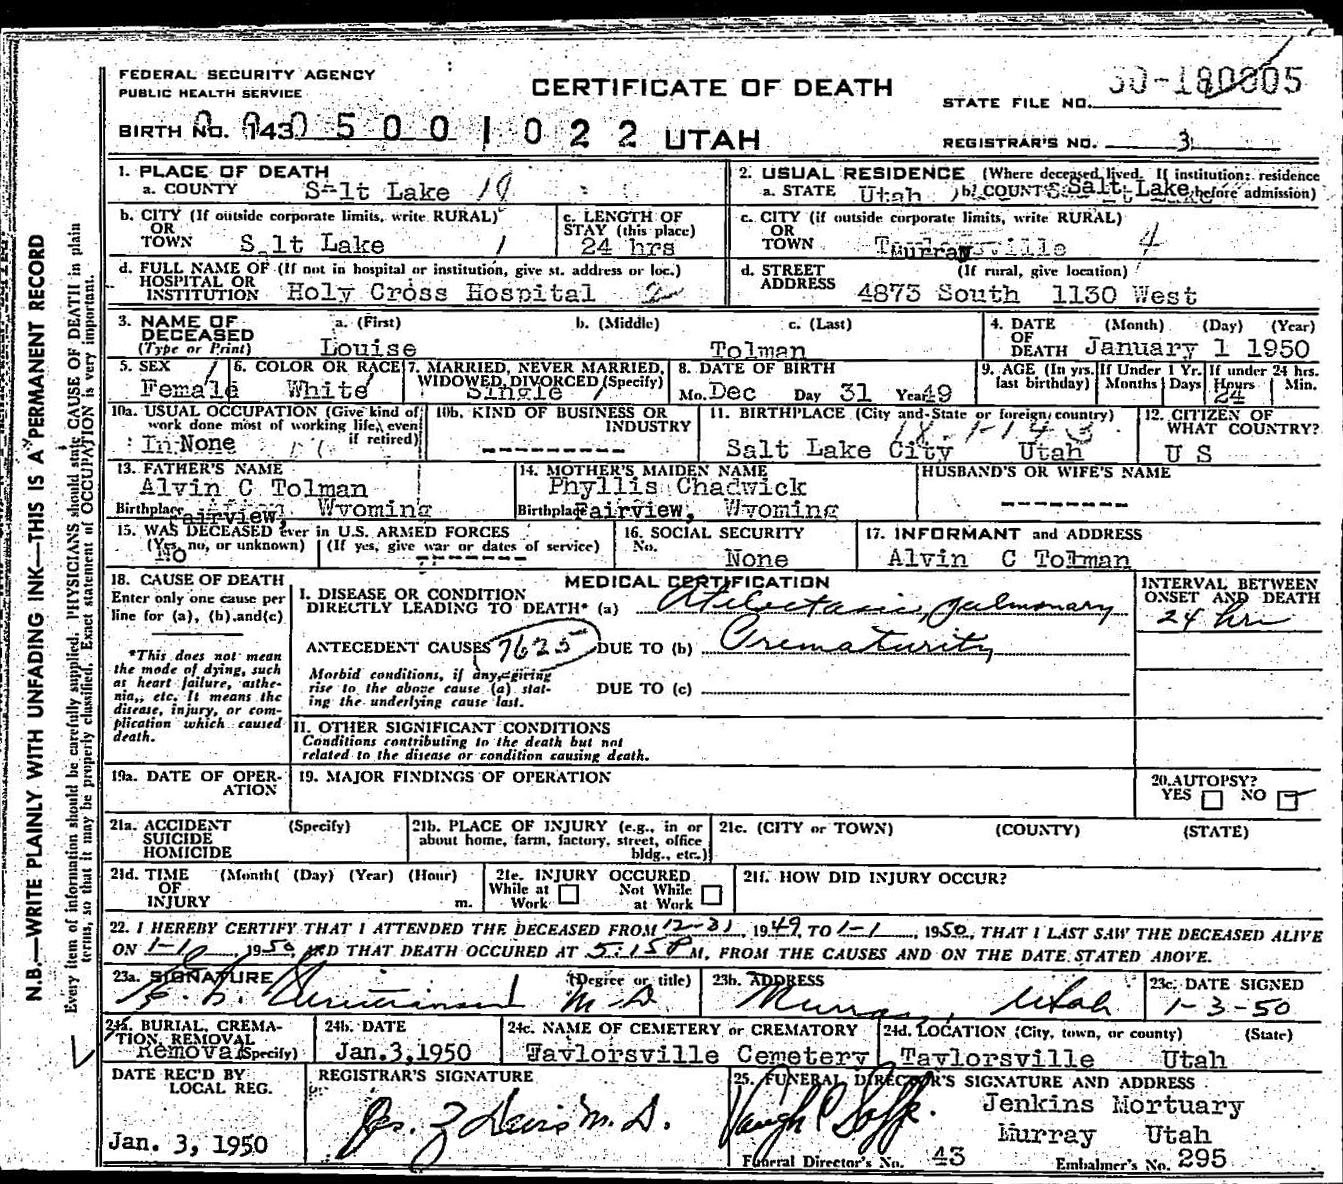 FEDERAL SECURITY AGENCY
PUBLIC HEALTH SERVICE
CERTIFICATE OF DEATH
STATE FILE NO.
BIRTH No. 143 5 0 0 1 0 2 2 UTAH
REGISTRAR'S NO. 3
1. PLACE OF DEATH
a. COUNTY Salt Lake
2. USUAL RESIDENCE (Where deceased lived. If institution: residence before admission)
a. STATE Utah b. COUNTY Salt Lake
b. CITY (If outside corporate limits, write RURAL)
OR
TOWN S lt Lake 1
c. LENGTH OF
STAY (this place)
24 hrs
c. CITY (if outside corporate limits, write RURAL)
OR
TOWN Murray 4
d. FULL NAME OF (If not in hospital or institution, give st. address or loc.)
HOSPITAL OR
INSTITUTION Holy Cross Hospital 2
d. STREET (If rural, give location)
ADDRESS 4873 South 1130 West
3. NAME OF DECEASED
(Type or Print)
a. (First) b. (Middle) c. (Last)
Louise Tolman
4. DATE OF DEATH (Month) (Day) (Year)
January 1 1950
5. SEX
Female
6. COLOR OR RACE
White
7. MARRIED, NEVER MARRIED,
WIDOWED, DIVORCED (Specify)
Single
8. DATE OF BIRTH
Mo. Dec Day 31 Year 49
9. AGE (In yrs. last birthday) If Under 1 Yr. Months Days If under 24 hrs. Hours Min.
24
10a. USUAL OCCUPATION (Give kind of
work done most of working life, even
if retired)
In None
10b. KIND OF BUSINESS OR
INDUSTRY
--------
11. BIRTHPLACE (City and State or foreign country)
Salt Lake City Utah
12. CITIZEN OF
WHAT COUNTRY?
U S
13. FATHER'S NAME
Alvin C Tolman
Birthplace Fairview, Wyoming
14. MOTHER'S MAIDEN NAME
Phyllis Chadwick
Birthplace Fairview, Wyoming
HUSBAND'S OR WIFE'S NAME
--------
15. WAS DECEASED ever in U.S. ARMED FORCES
(Yes, no, or unknown) (If yes, give war or dates of service)
No --------
16. SOCIAL SECURITY
No.
None
17. INFORMANT and ADDRESS
Alvin C Tolman
18. CAUSE OF DEATH
Enter only one cause per
line for (a), (b) and (c)
*This does not mean
the mode of dying, such
as heart failure, asthe-
nia, etc. It means the
disease, injury, or com-
plication which caused
death.
MEDICAL CERTIFICATION
I. DISEASE OR CONDITION
DIRECTLY LEADING TO DEATH* (a) Atelectasis, pulmonary
ANTECEDENT CAUSES 7625 DUE TO (b) Prematurity
Morbid conditions, if any, giving
rise to the above cause (a) stat-
ing the underlying cause last.
DUE TO (c)
INTERVAL BETWEEN
ONSET AND DEATH
24 hrs
II. OTHER SIGNIFICANT CONDITIONS
Conditions contributing to the death but not
related to the disease or condition causing death.
19a. DATE OF OPER-
ATION
19. MAJOR FINDINGS OF OPERATION
20. AUTOPSY?
YES NO
21a. ACCIDENT (Specify)
SUICIDE
HOMICIDE
21b. PLACE OF INJURY (e.g., in or
about home, farm, factory, street, office
bldg., etc.)
21c. (CITY or TOWN) (COUNTY) (STATE)
21d. TIME (Month( (Day) (Year) (Hour)
OF
INJURY m.
21e. INJURY OCCURED
While at Work Not While at Work
21f. HOW DID INJURY OCCUR?
22. I HEREBY CERTIFY THAT I ATTENDED THE DECEASED FROM 12-31, 1949, TO 1-1, 1950, THAT I LAST SAW THE DECEASED ALIVE
ON 1-1, 1950, AND THAT DEATH OCCURED AT 5:15 P M, FROM THE CAUSES AND ON THE DATE STATED ABOVE.
23a. SIGNATURE (Degree or title)
M D
23b. ADDRESS
Murray, Utah
23c. DATE SIGNED
1-3-50
24a. BURIAL, CREMA-
TION, REMOVAL
Removal (Specify)
24b. DATE
Jan. 3, 1950
24c. NAME OF CEMETERY or CREMATORY
Taylorsville Cemetery
24d. LOCATION (City, town, or county) (State)
Taylorsville Utah
DATE REC'D BY
LOCAL REG.
Jan. 3, 1950
REGISTRAR'S SIGNATURE
25. FUNERAL DIRECTOR'S SIGNATURE AND ADDRESS
Jenkins Mortuary
Murray Utah
Funeral Director's No. 43 Embalmer's No. 295
N.B.—WRITE PLAINLY WITH UNFADING INK—THIS IS A PERMANENT RECORD
Every item of information should be carefully supplied. PHYSICIANS should state CAUSE OF DEATH in plain
terms, so that it may be properly classified. Exact statement of OCCUPATION is very important.